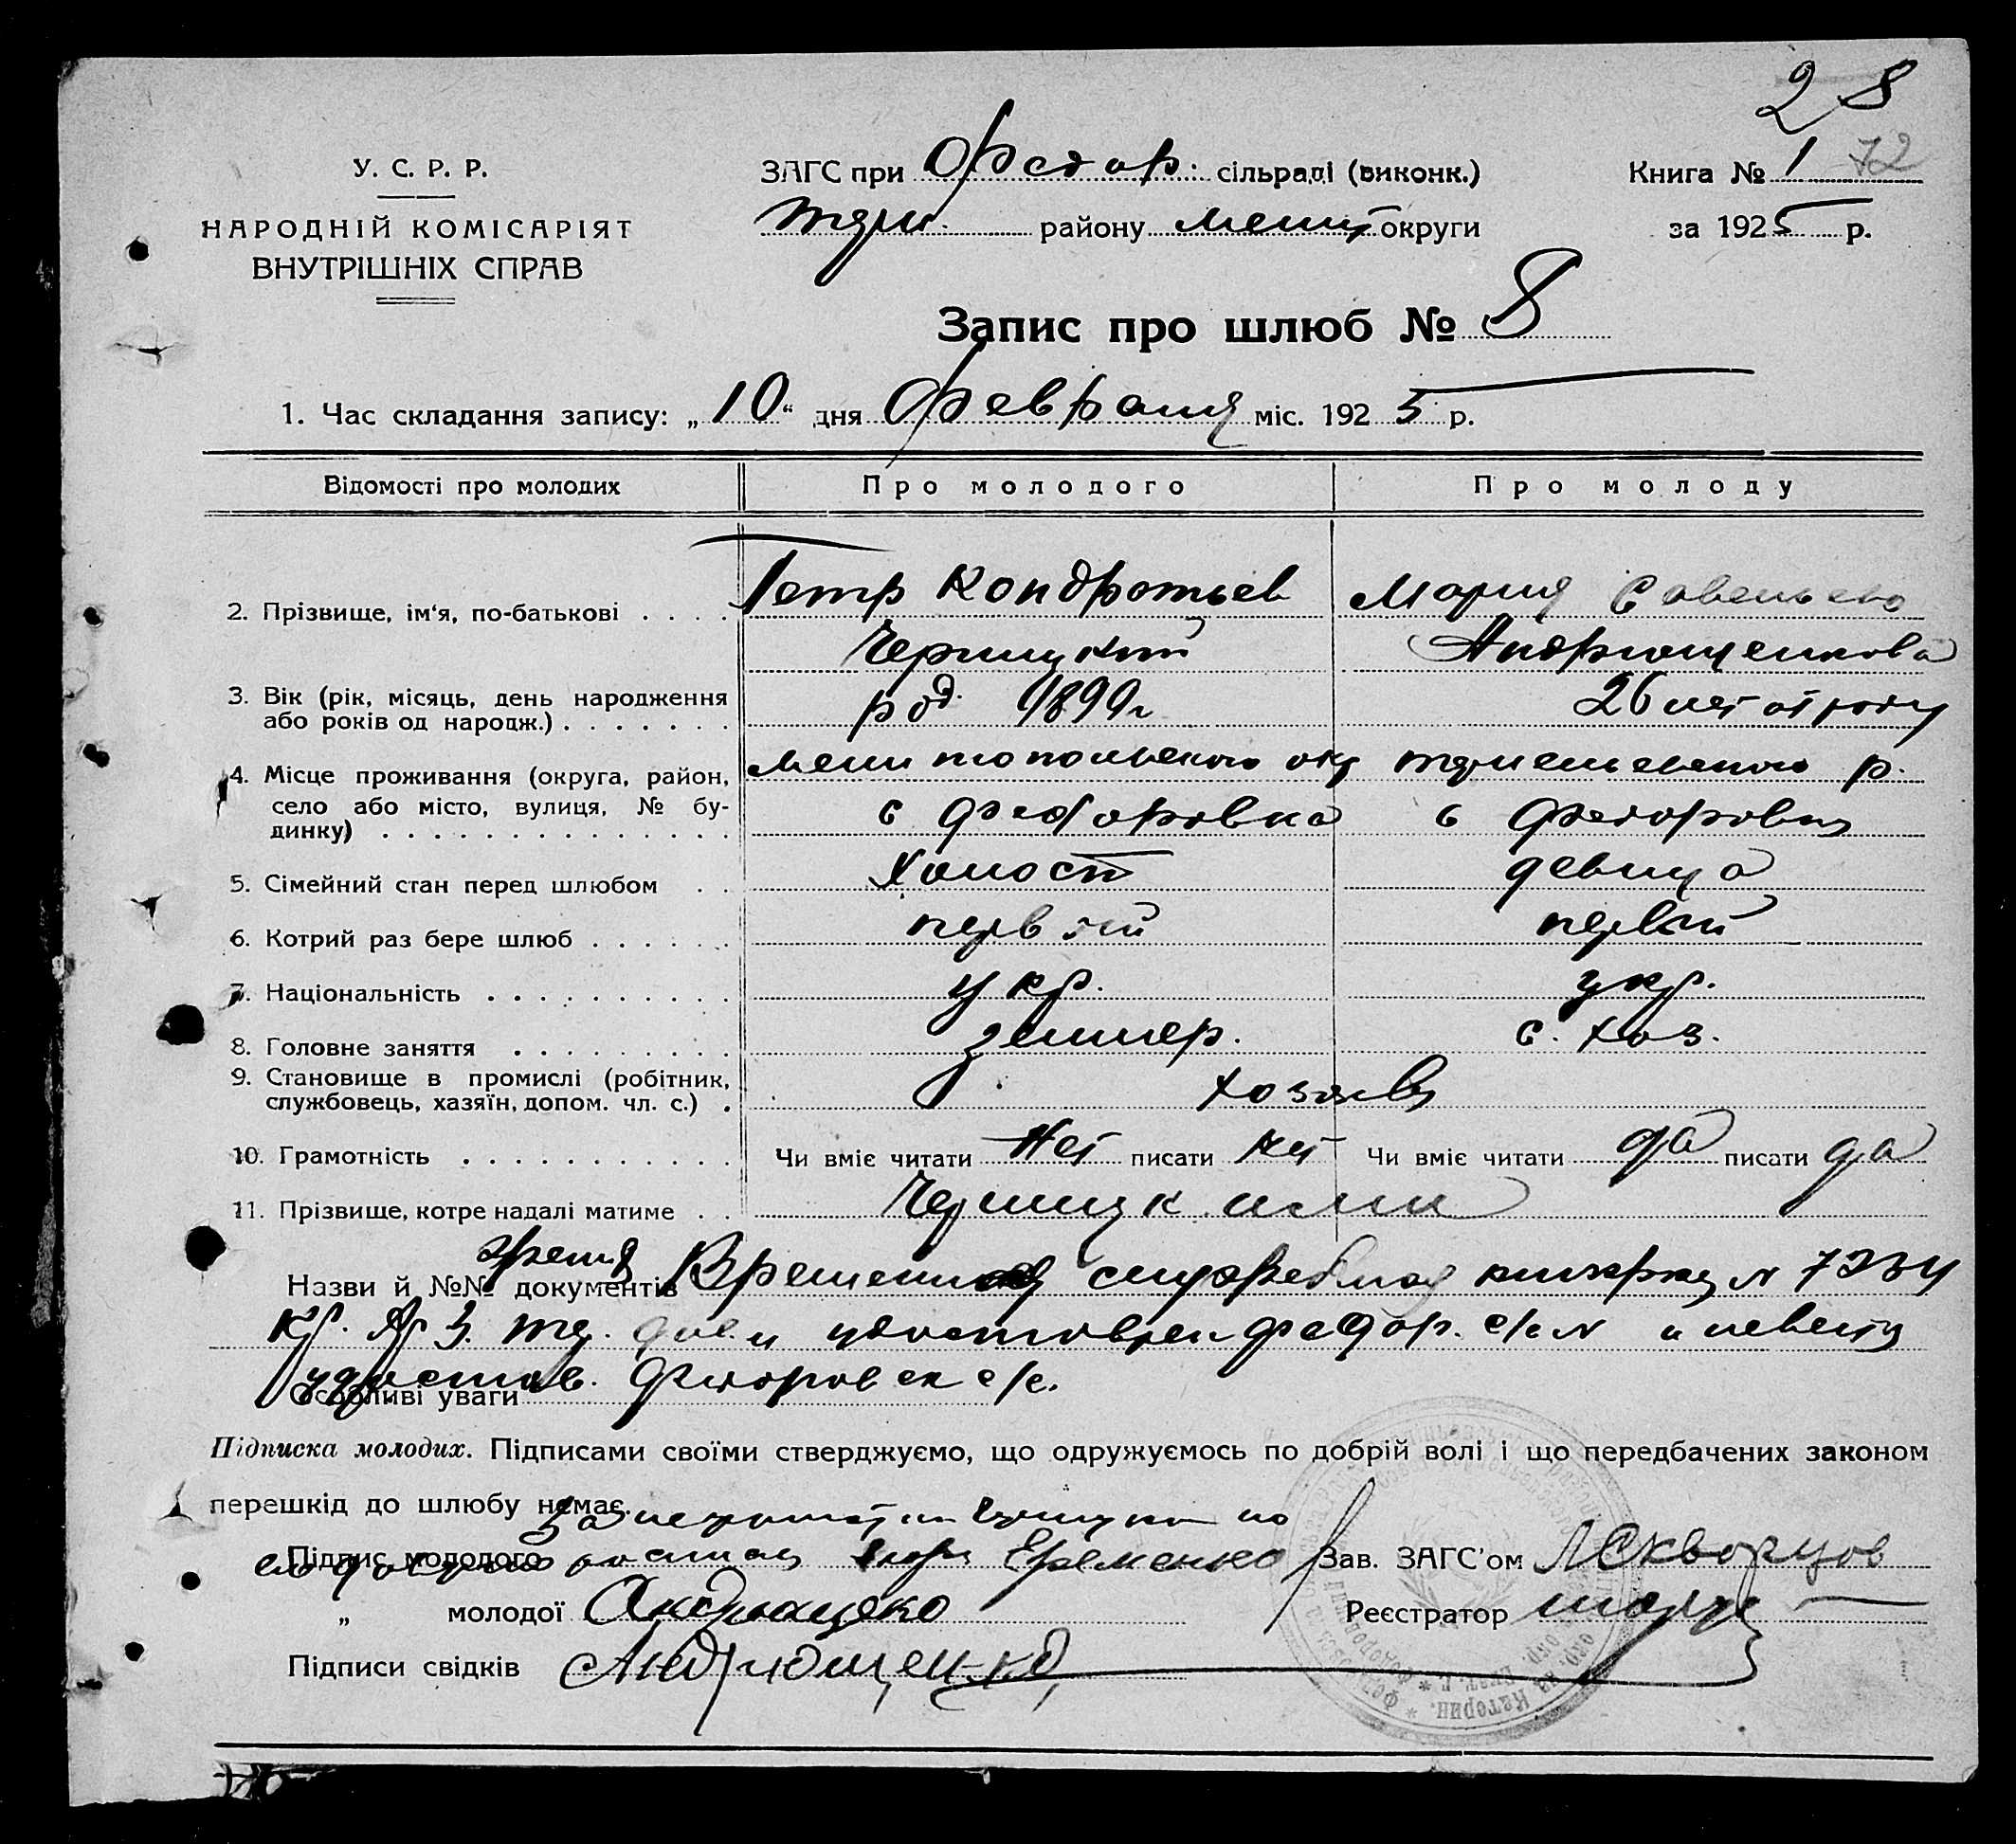 28
У. С. Р. Р.
НАРОДНІЙ КОМІСАРІЯТ
ВНУТРІШНІХ СПРАВ
ЗАГС при Федор. сільраді (виконк.)
району Мелит округи
Книга № 1 72
за 1925 р.
Запис про шлюб № 8
1. Час складання запису: „10“ дня Февраля міс. 1925 р.
Відомості про молодих Про молодого Про молоду
2. Прізвище, ім‘я, по-батькові . . . . Петр Кондратьев Мария Савельева
Андрющенкова
3. Вік (рік, місяць, день народження
або років од народж.) . . . . . . . род. 1899 г 26 лет от роду
4. Місце проживання (округа, район, Мелитопольского окр р.
село або місто, вулиця, № бу-
динку) . . . . . . . . . . . . . . с Федоровка с Федоровка
5. Сімейний стан перед шлюбом . . Холост девица
6. Котрий раз бере шлюб . . . . . . первый первый
7. Національність . . . . . . . . . . укр. укр.
8. Головне заняття . . . . . . . . . землер. с. хоз.
9. Становище в промислі (робітник,
службовець, хазяїн, допом. чл. с.) . хозяева
10. Грамотність . . . . . . . . . . . Чи вміє читати Нет писати нет Чи вміє читати да писати да
11. Прізвище, котре надалі матиме . .
Назви й №№ документів Временная служебная книжка № 7234
Кр. удостоверен Федор. с/с № и невесты
Особливі уваги удостов. Федоровск с/с.
Підписка молодих. Підписами своїми стверджуємо, що одружуємось по добрій волі і що передбачених законом
перешкід до шлюбу немає.
За неграмотн по
Підпис молодого Еременко Зав. ЗАГС’ом Скворцов
„ молодої Андрющенко Реєстратор
Підписи свідків Андрющенко